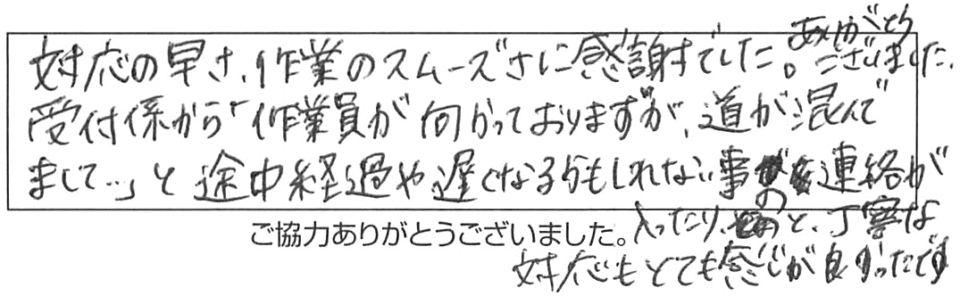 対応の早さ、作業のスムーズさに感謝でした。ありがとう
ございました。
受付係から「作業員が向かっておりますが、道が混んで
まして…」と途中経過や遅くなるかもしれない事の連絡が
入ったり、と、丁寧な
対応もとても感じが良かったです
ご協力ありがとうございました。